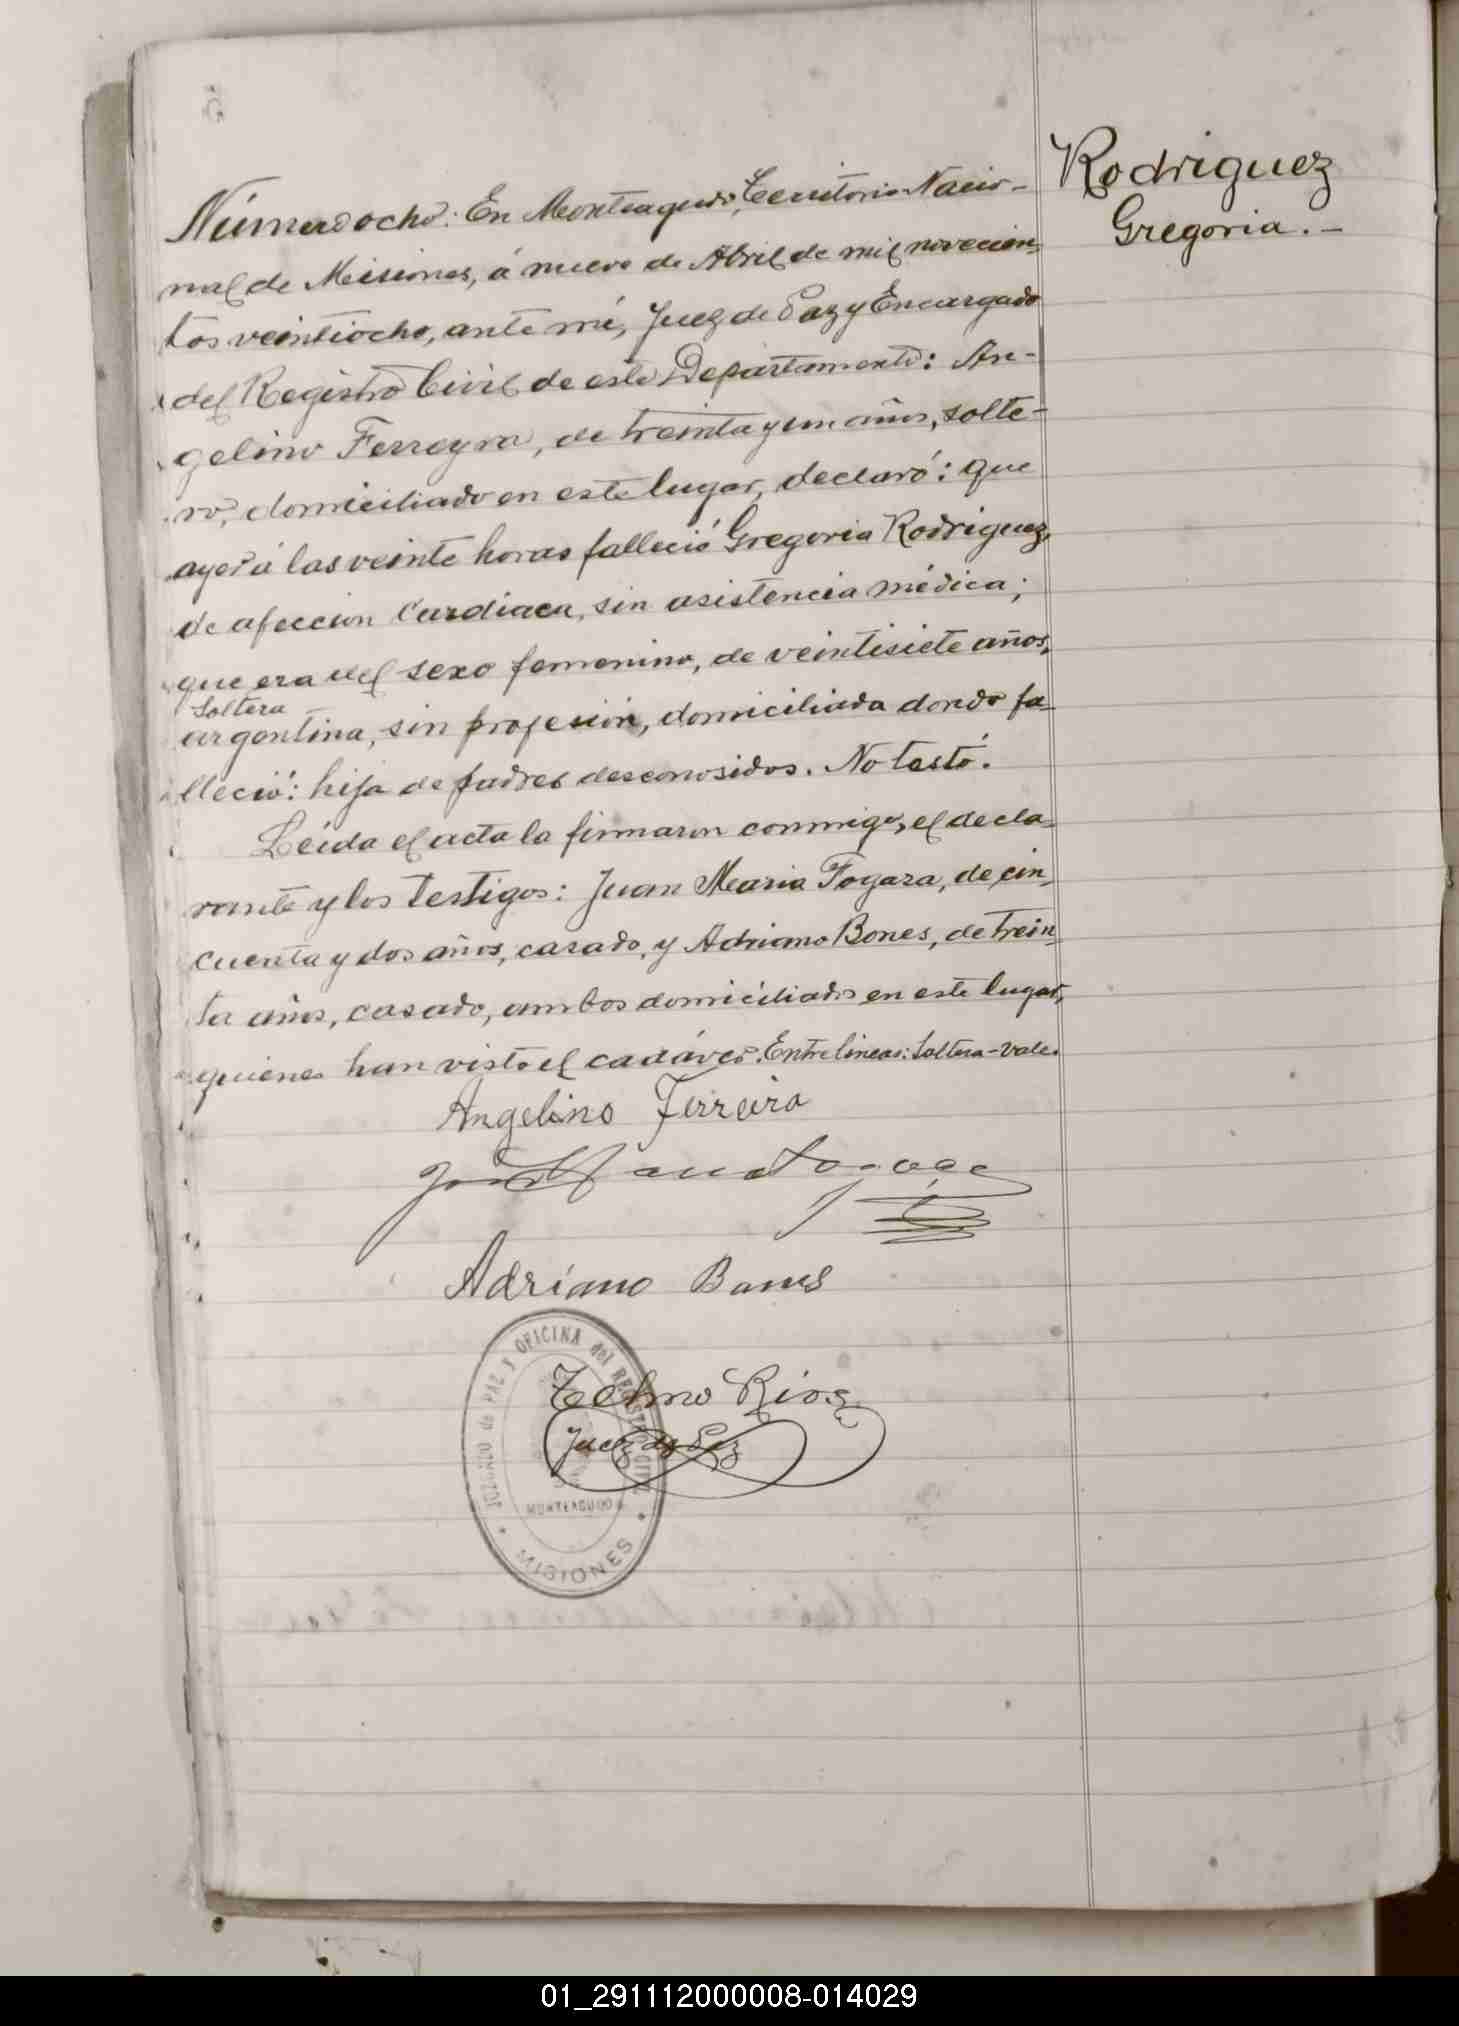 Rodriguez
Gregoria. -
Número ocho: En Monteagudo, Territorio Nacio-
nal de Misiones, á nueve de Abril de mil novecien-
tos veintiocho, ante mí, Juez de Paz y Encargado
del Registro Civil de este Departamento: An-
gelino Ferreyra, de treinta y un años, solte-
ro, domiciliado en este lugar, declaró: que
ayer á las veinte horas falleció Gregoria Rodriguez,
de afeccion Cardiaca, sin asistencia médica;
que era del sexo femenino, de veintisiete años,
Soltera
argentina, sin profesión, domiciliada donde fa-
lleció: hija de padres desconosidos. No testó.
Leída el acta la firmaron conmigo, el decla-
rante y los testigos: Juan Maria Fogaza, de cin-
cuenta y dos años, casado, y Adriano Bones, de trein-
ta años, casado, ambos domiciliados en este lugar,
quienes han visto el cadáver. Entre lineas: Soltera - Vale.
Angelino Ferreira
Adriano Bones
Telmo Rios
Juez de Paz
JUZGADO de PAZ y OFICINA del REGISTRO CIVIL
MONTEAGUDO
MISIONES
01_291112000008-014029